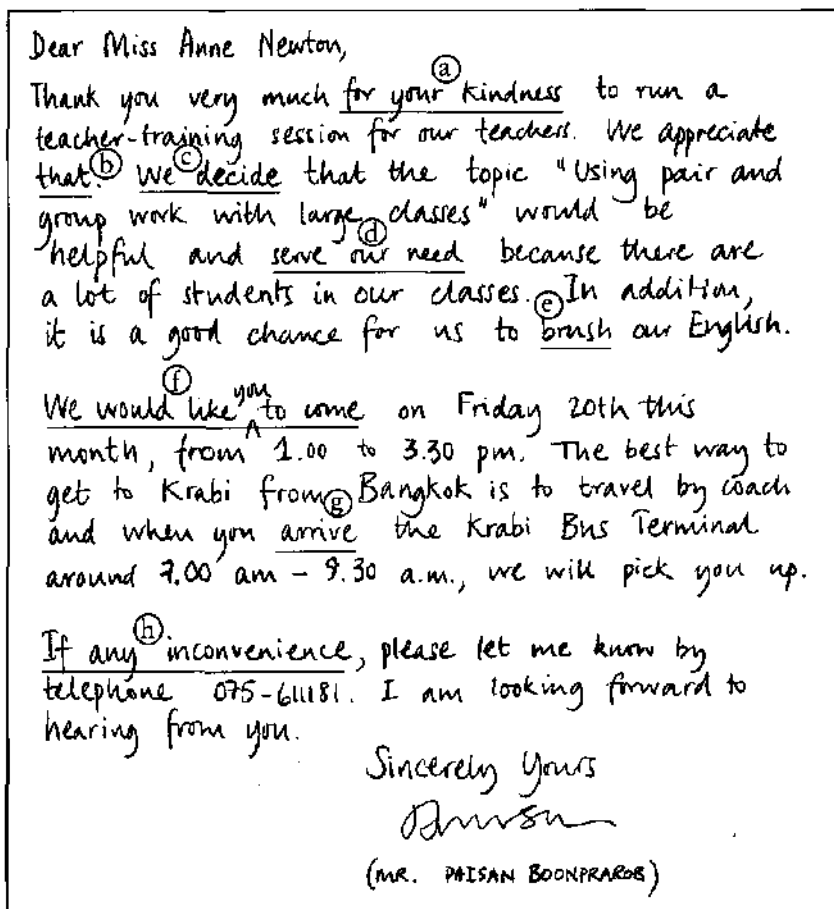 Dear Miss Anne Newton,
Thank you very much for your ⓐ kindness to run a
teacher-training session for our teachers. We appreciate
that. ⓑ We ⓒ decide that the topic "Using pair and
group work with large classes" would be
helpful and serve ⓓ our need because there are
a lot of students in our classes. In addition,
it is a good chance for us to ⓔ brush our English.
We would ⓕ like you to come on Friday 20th this
month, from 1.00 to 3.30 pm. The best way to
get to Krabi from Bangkok is to travel by coach
and when you ⓖ arrive the Krabi Bus Terminal
around 7.00 am - 9.30 a.m., we will pick you up.
If any ⓗ inconvenience, please let me know by
telephone 075-611181. I am looking forward to
hearing from you.
Sincerely Yours
(MR. PAISAN BOONPRAROB)